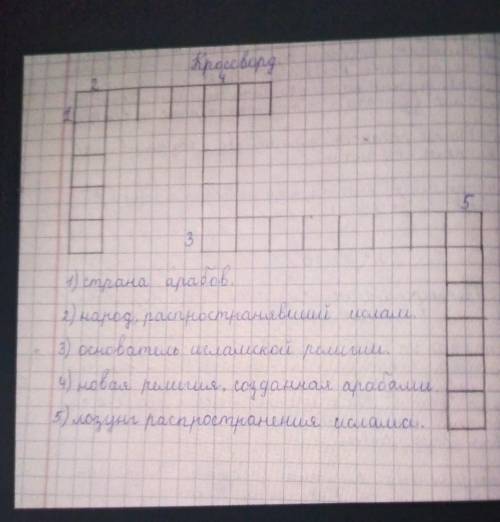 Кроссворд
2 4
1
5
3
1) страна арабов.
2) народ, распространявший ислам.
3) основатель исламской религии.
4) новая религия, созданная арабами
5) лозунг распространения ислама.